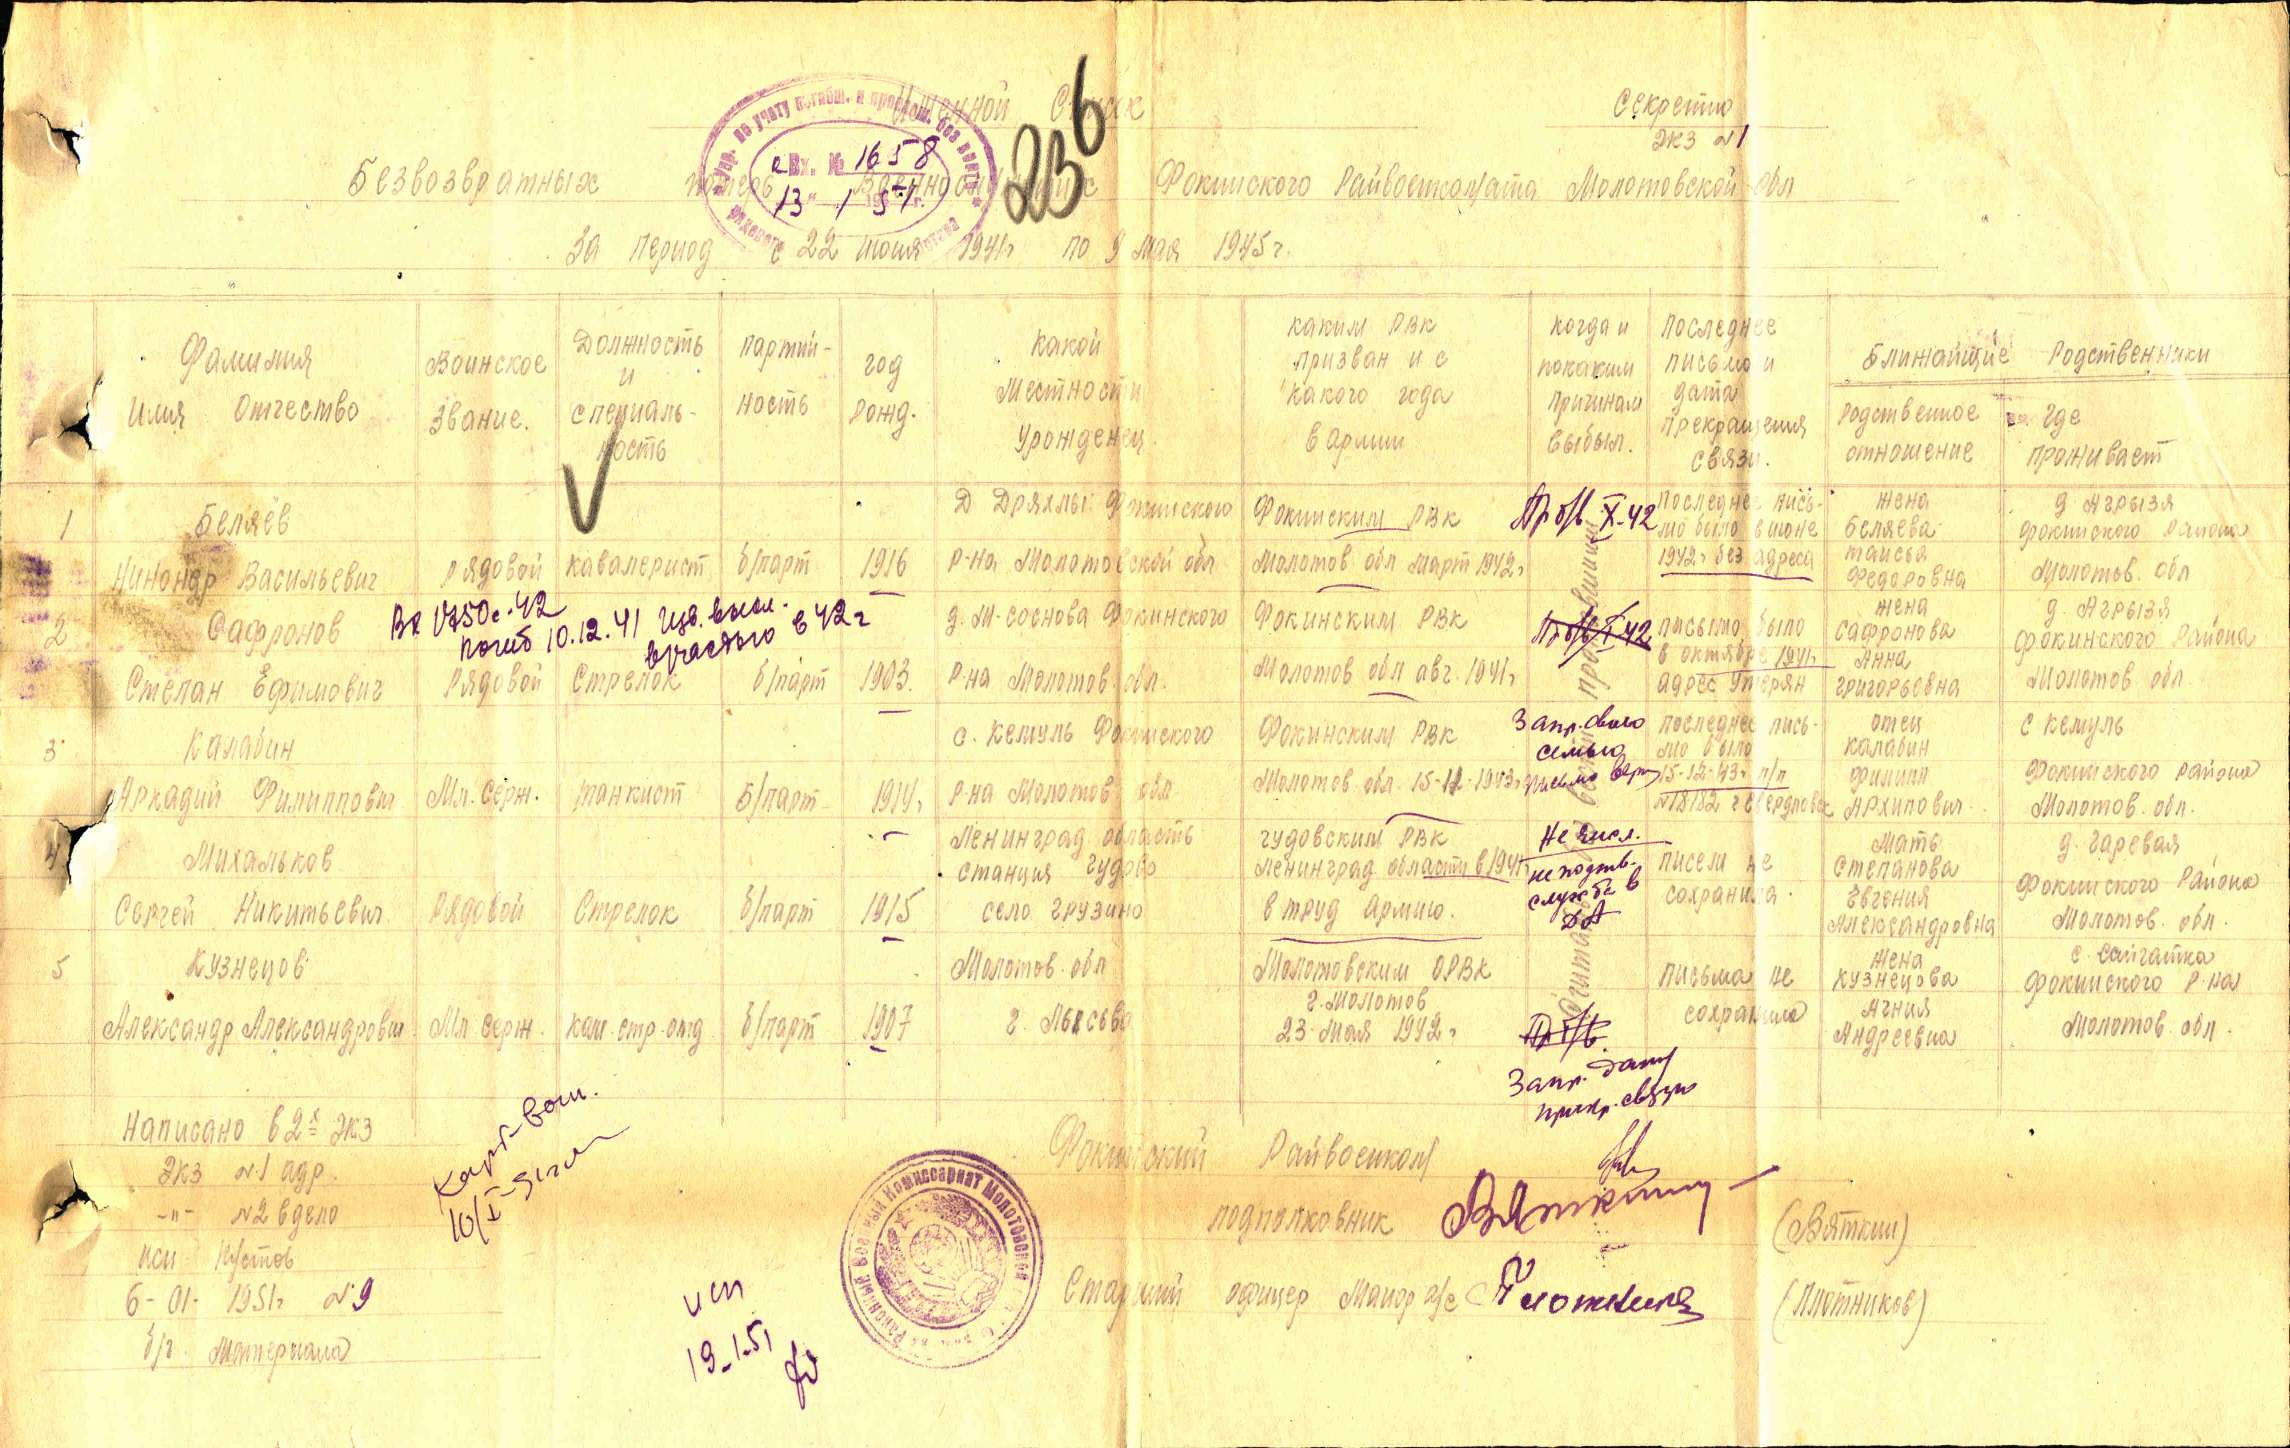 Именной Список
Секретно
Экз №1
236
Упр. по учету погибш. и пропавш. без вести
рядового состава
Вх. № 1658
"13" 1 1951 г.
Безвозвратных потерь Военнослужащих Фокинского Райвоенкомата Молотовской обл
За период с 22 июня 1941г по 9 мая 1945г.
Фамилия Имя Отчество
Воинское Звание.
Должность и специальность
партийность
год рожд.
Какой Местности Урожденец.
каким РВК призван и с какого года в армии
когда и по каким причинам выбыл.
Последнее письмо и дата прекращения связи.
Ближайшие Родственники
Родственное отношение
где проживает
1 Беляев Никонор Васильевич рядовой кавалерист б/парт 1916
Д Дряхлы Фокинского р-на Молотовской обл
Фокинским РВК Молотов обл март 1942г
Пр б/в X-42
Последнее письмо было в июне 1942г без адреса
жена Беляева Таисья Федоровна
д Агрызя Фокинского района Молотов. обл
2 Сафронов Степан Ефимович Рядовой Стрелок б/парт 1903.
Вх 1750с-42
погиб 10.12.41 изв. высл. в частью в 42г
д. М-соснова Фокинского р-на Молотов. обл.
Фокинским РВК Молотов обл авг. 1941г
Пр б/в I 42
письмо было в октябре 1941г адрес утерян
жена Сафронова Анна Григорьевна
д. Агрызя Фокинского района Молотов обл
3 Калабин Аркадий Филиппович Мл. Серж. танкист Б/парт 1914г
с. Кемуль Фокинского р-на Молотов обл
Фокинским РВК Молотов обл.
Запр. семью
последнее письмо было 15-12-43г п/п
отец Калабин Филипп Архипович
с Кемуль Фокинского района Молотов. обл.
4 Михальков Сергей Никитьевич Рядовой Стрелок б/парт 1915
Ленинград область станция Чудово село Грузино
Чудовским РВК Ленинград области в 1941г в труд армию.
Не числ.
не подтв. служба в
писем не сохранила.
Мать Степанова Евгения Александровна
д. Гаревая Фокинского района Молотов. обл.
5 Кузнецов Александр Александрович Мл серж. ком. стр. отд б/парт 1907
Молотов. обл г. Лысьва
Молотовским ОРВК г. Молотов 23 Мая 1942г
Пр б/в
Запр. дату прекр. связи
письма не сохранила
жена Кузнецова Агния Андреевна
с. Сайгатка Фокинского р-на Молотов. обл.
Считать без вести пропавшими
Написано в 2х экз
Экз №1 адр.
-"- №2 в дело
исп
6-01-1951г №9
б/г. Материала
исп
19-1-51
Районный Военный Комиссариат Молотовской
Фокинский Райвоенком
подполковник (Вяткин)
Старший офицер Майор а/с (Плотников)